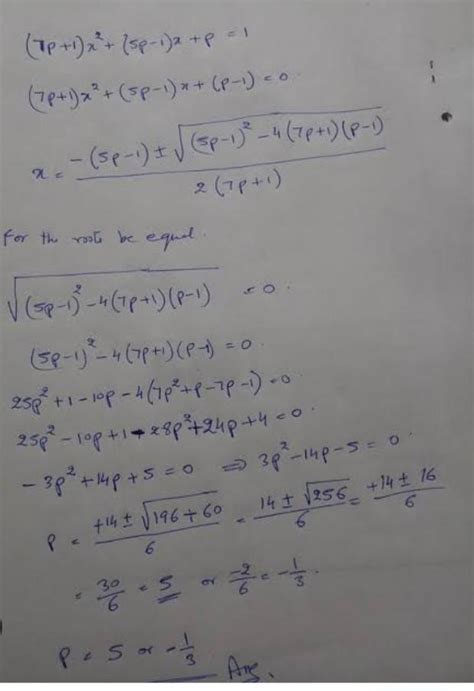 (7p+1)x² + (5p-1)x + p = 1
(7p+1)x² + (5p-1)x + (p-1) = 0.
x = -(5p-1) ± √((5p-1)² - 4(7p+1)(p-1)) / 2(7p+1)
For the roots be equal.
√((5p-1)² - 4(7p+1)(p-1)) = 0.
(5p-1)² - 4(7p+1)(p-1) = 0.
25p² + 1 - 10p - 4(7p² + p - 7p - 1) = 0
25p² - 10p + 1 - 28p² + 24p + 4 = 0.
-3p² + 14p + 5 = 0 ⇒ 3p² - 14p - 5 = 0.
p = +14 ± √(196 + 60) / 6 = 14 ± √256 / 6 = +14 ± 16 / 6
= 30/6 = 5 or -2/6 = -1/3.
p = 5 or -1/3 Ans.